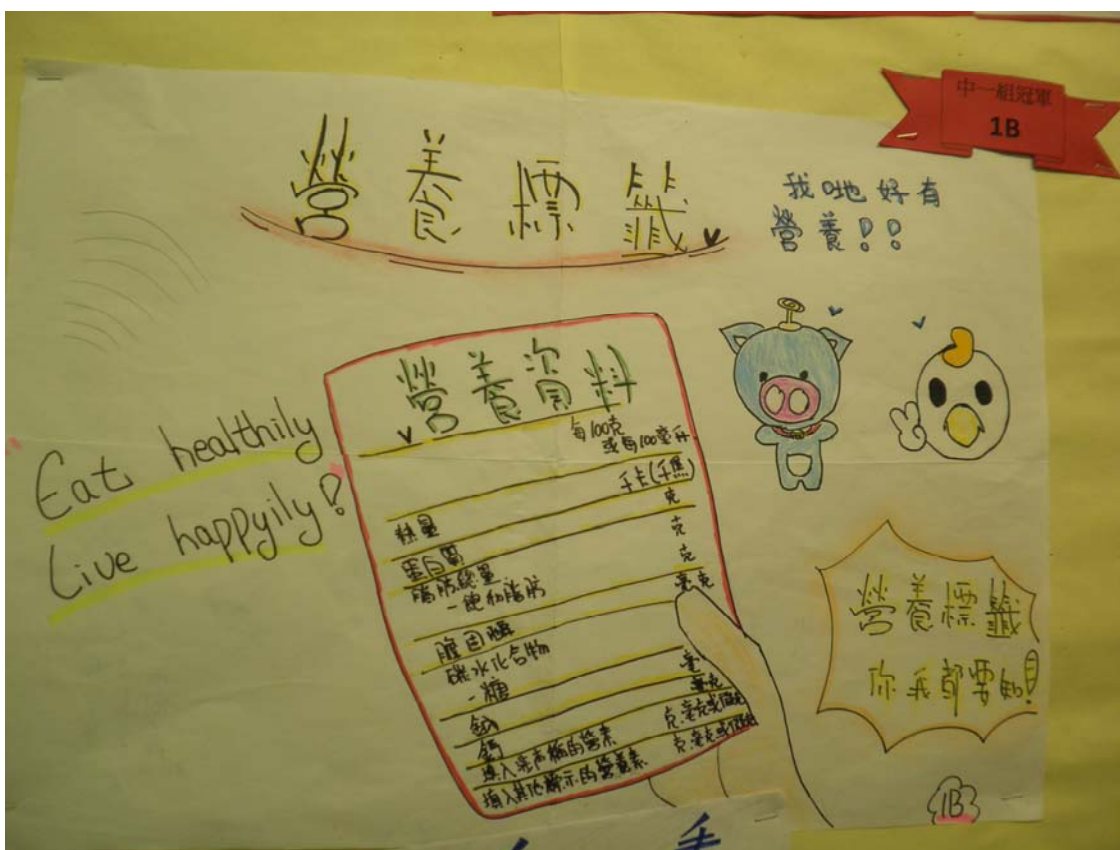 中一組冠軍
1B
營養標籤
我哋好有
營養!!
Eat healthily
Live happyily!
營養資料
每100克
或每100毫升
千卡(千焦)
熱量
克
蛋白質 克
脂肪總量 克
-飽和脂肪 毫克
膽固醇
碳水化合物
-糖
鈉 毫
鈣 毫克
填入 聲稱的營素 克、毫克或微克
填入其他標示的營養素 克、毫克或微克
營養標籤
你我都要知!
1B